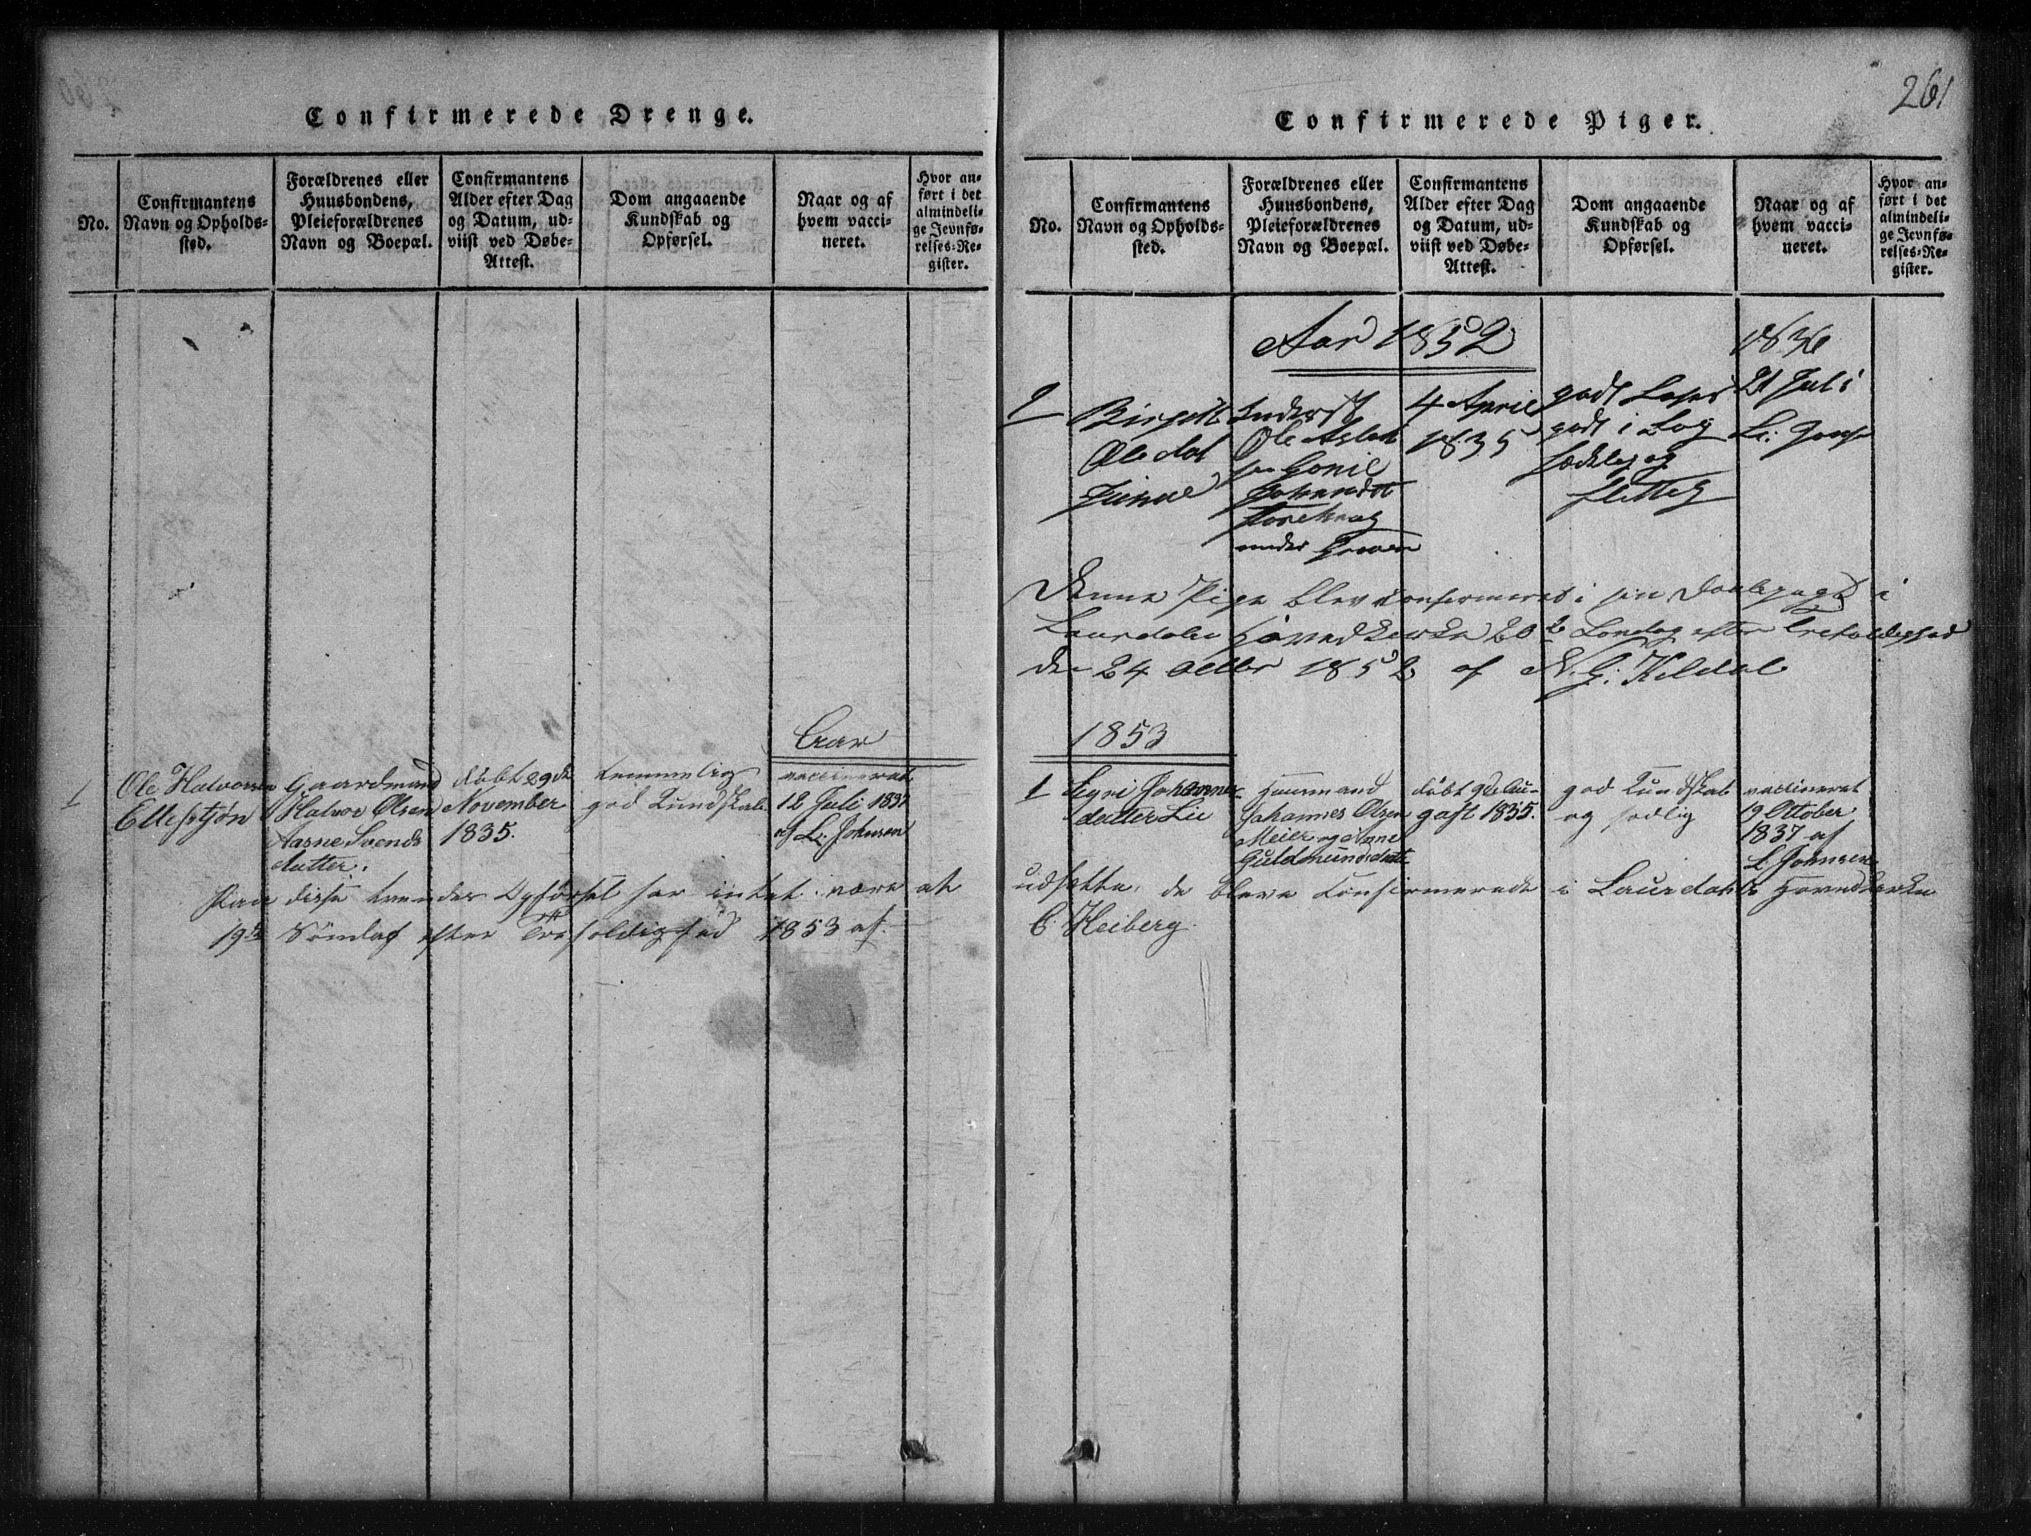 261
Confirmerede Drenge.
No.
Confirmantens
Navn og Opholds-
sted.
Forældrenes eller
Huusbondens,
Pleieforældrenes
Navn og Boepæl.
Confirmantens
Alder efter Dag
og Datum, ud-
viist ved Døbe-
Attest.
Dom angaaende
Kundskab og
Opførsel.
Naar og af
hvem vacci-
neret.
Hvor an-
ført i det
almindeli-
ge Jevnfø-
relses-Re-
gister.
Aar
1
Ole Halvorsen
Ellefstjøn
Gaardmand
Halvor Olsen
Aasne Svends
datter.
døbt 29de
November
1835.
temmelig
god Kundskab
vaccineret
12 Juli 1837
af L. Johnsen
Paa disse tvendes Opførsel har intet være at
19de Søndag efter Trefoldighed 1853 af
Confirmerede Piger.
No.
Confirmantens
Navn og Opholds-
sted.
Forældrenes eller
Huusbondens,
Pleieforældrenes
Navn og Boepæl.
Confirmantens
Alder efter Dag
og Datum, ud-
viist ved Døbe-
Attest.
Dom angaaende
Kundskab og
Opførsel.
Naar og af
hvem vacci-
neret.
Hvor an-
ført i det
almindeli-
ge Jevnfø-
relses-Re-
gister.
Aar 1852
Birgitt
Ole
Ole Aslak
sen Gonil
under
4 April
1835
godt
godt i
og
1836
21 Juli
L.
Denne Pige blev confirmeret i sin i
Laurdals Hovedkirke 20de Søndag efter Trefoldighed
den 24 Octbr 1852 af N. G. Kildal
1853
1
Gyri Johannes-
datter Lie
Huusmand
Johannes Olsen
Meier og Anne
Guldmundsdatter
døbt 9de Au-
gust 1835.
god Kundskab
og sædlig
vaccineret
19 Oktober
1837 af
L. Johnsen
udsætte, de bleve Confirmerede i Laurdahls Hovedkirke
C. Heiberg